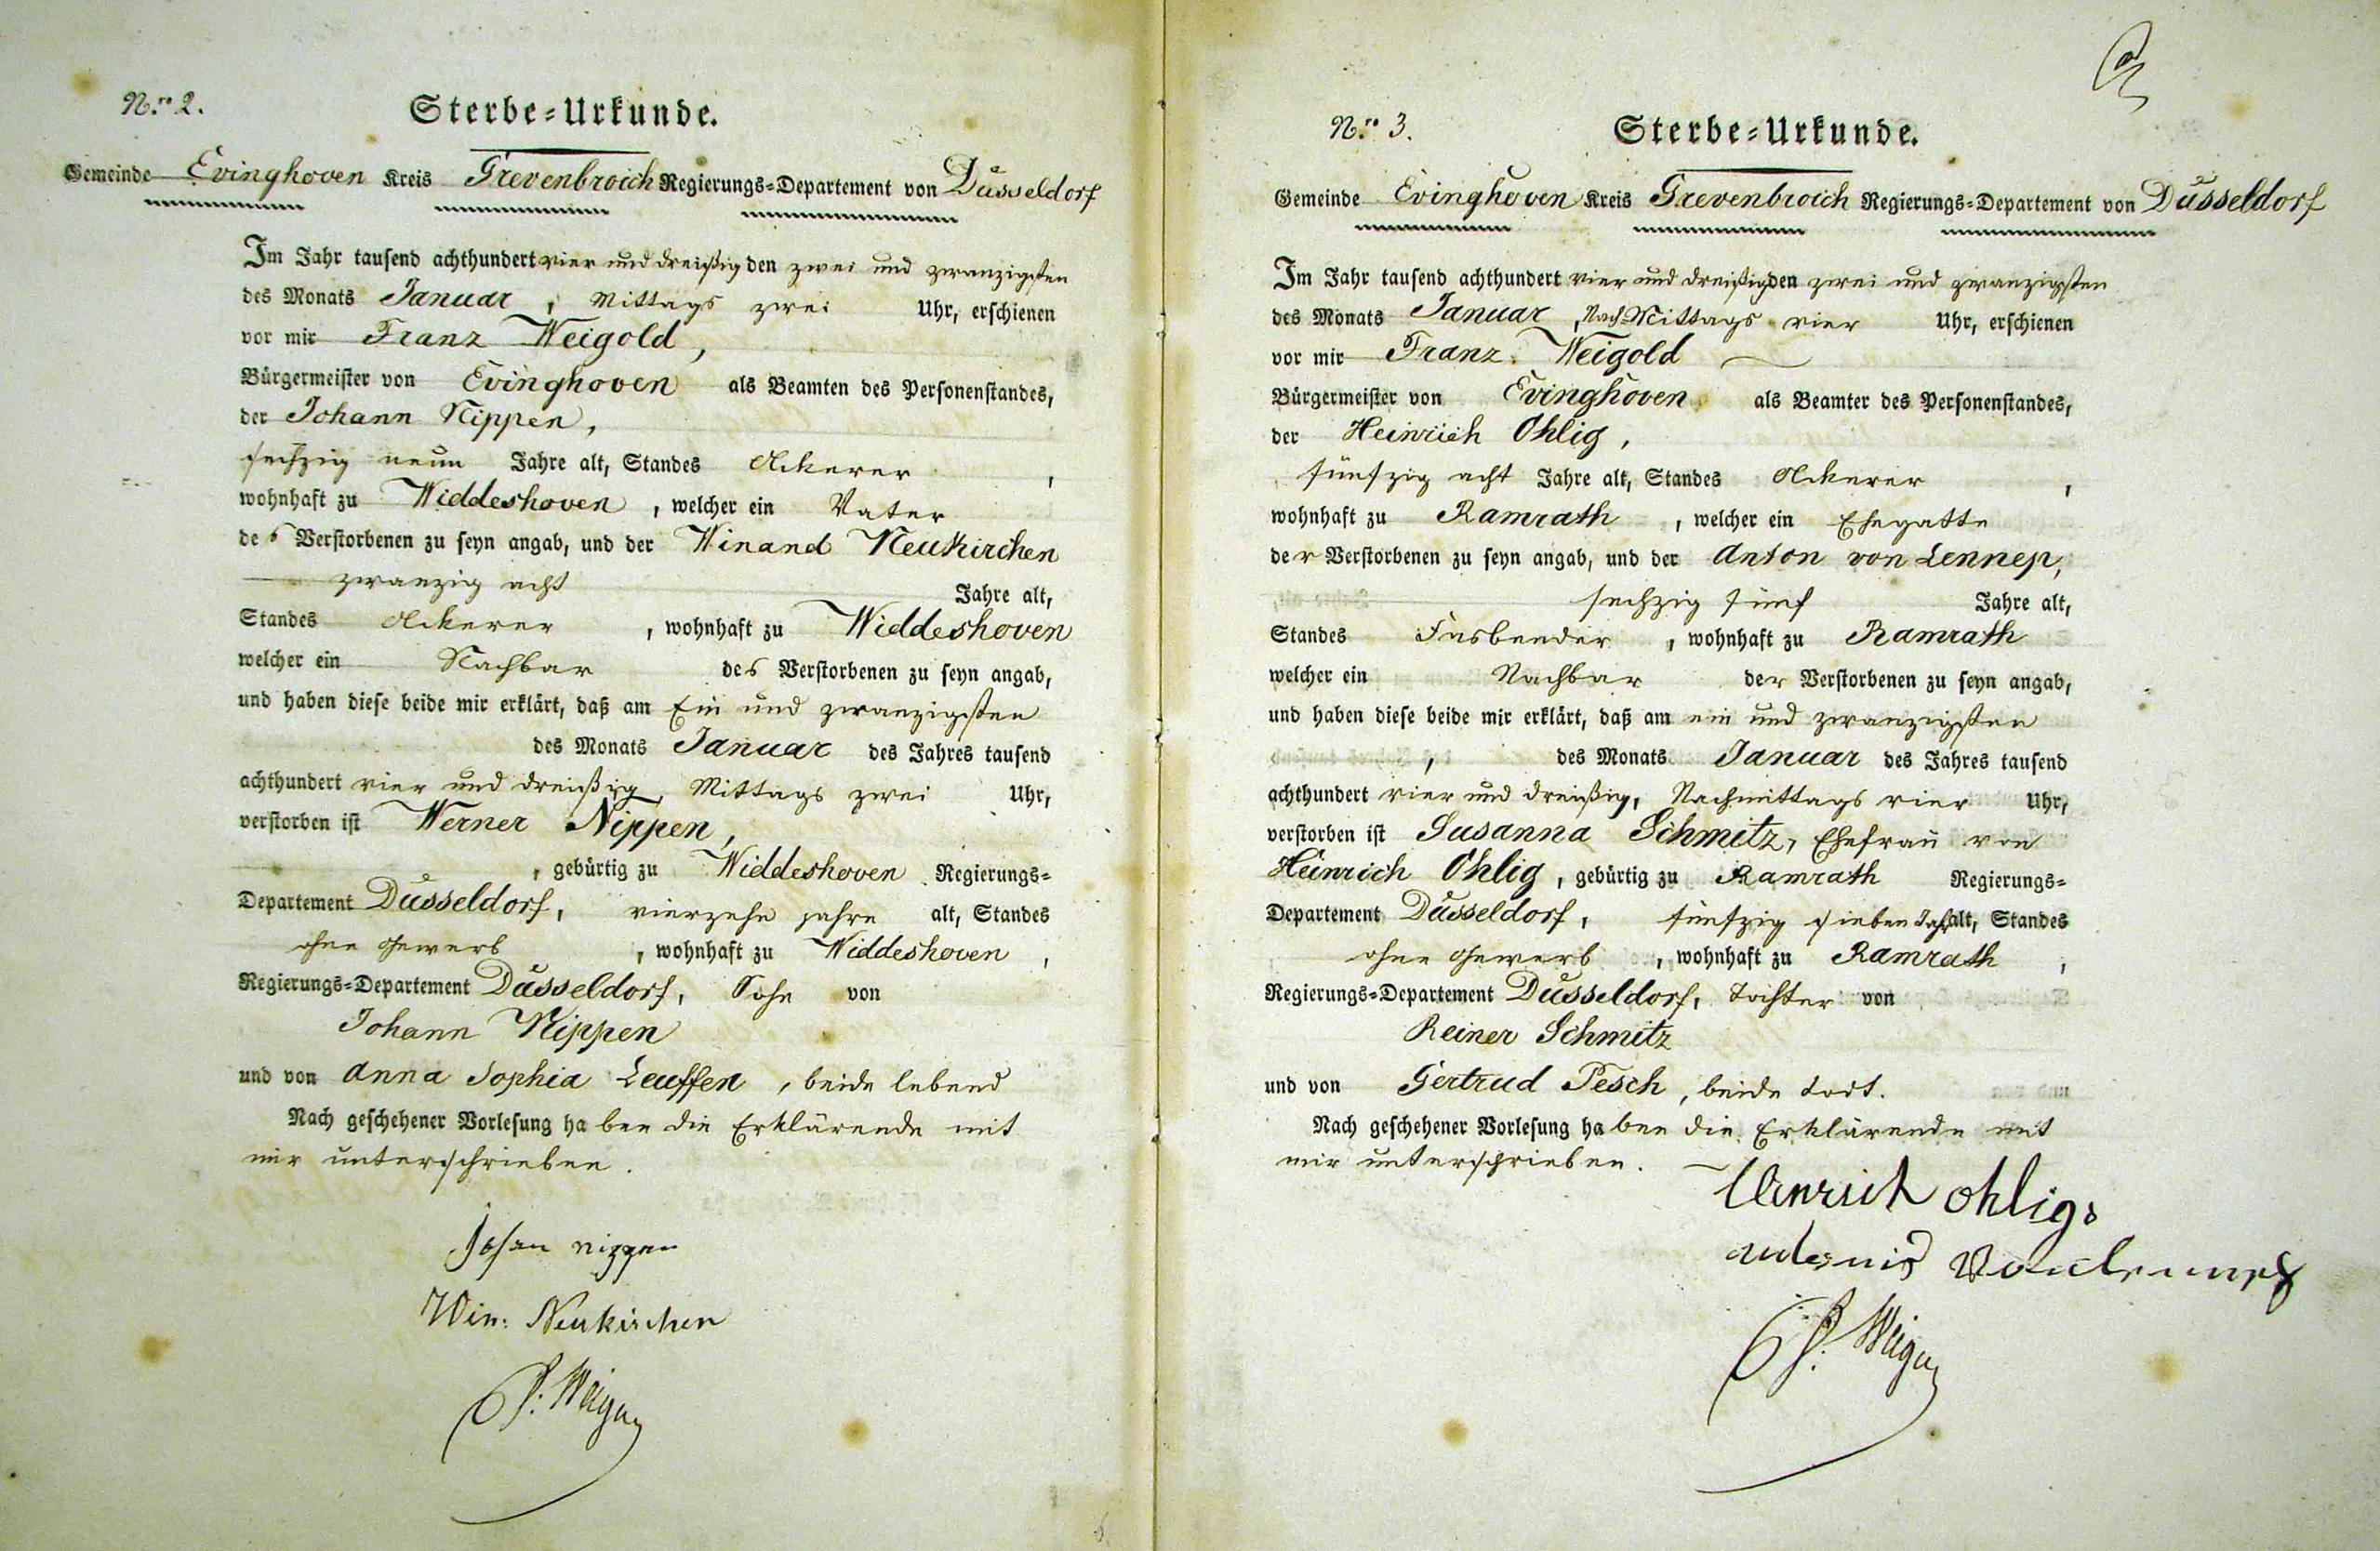 N.ro 2.
Sterbe=Urkunde.
Gemeinde Evinghoven Kreis Grevenbroich Regierungs=Departement von Düsseldorf
Im Jahr tausend achthundert vier und dreißig den zwei und zwanzigsten
des Monats Januar, Mittags zwei Uhr, erschienen
vor mir Franz Weigold,
Bürgermeister von Evinghoven als Beamten des Personenstandes,
der Johann Nippen,
sechzig neun Jahre alt, Standes Ackerer,
wohnhaft zu Widdeshoven, welcher ein Vater
des Verstorbenen zu seyn angab, und der Winand Neukirchen
zwanzig acht Jahre alt,
Standes Ackerer, wohnhaft zu Widdeshoven
welcher ein Nachbar des Verstorbenen zu seyn angab,
und haben diese beide mir erklärt, daß am Ein und zwanzigsten
des Monats Januar des Jahres tausend
achthundert vier und dreißig, Mittags zwei Uhr,
verstorben ist Werner Nippen,
, gebürtig zu Widdeshoven Regierungs=
Departement Düsseldorf, vierzehn Jahre alt, Standes
ohne Gewerb, wohnhaft zu Widdeshoven,
Regierungs=Departement Düsseldorf, Sohn von
Johann Nippen
und von Anna Sophia Leuffen, beide lebend
Nach geschehener Vorlesung haben die Erklärende mit
mir unterschrieben.
Johan nippen
Win: Neukirchen
F: Weigold
N.ro 3.
Sterbe=Urkunde.
Gemeinde Evinghoven Kreis Grevenbroich Regierungs=Departement von Düsseldorf
Im Jahr tausend achthundert vier und dreißig den zwei und zwanzigsten
des Monats Januar, Nach Mittags vier Uhr, erschienen
vor mir Franz Weigold
Bürgermeister von Evinghoven als Beamter des Personenstandes,
der Heinrich Ohlig,
fünfzig acht Jahre alt, Standes Ackerer,
wohnhaft zu Ramrath, welcher ein Ehegatte
der Verstorbenen zu seyn angab, und der Anton von Lennep,
sechzig fünf Jahre alt,
Standes Fasbender, wohnhaft zu Ramrath
welcher ein Nachbar der Verstorbenen zu seyn angab,
und haben diese beide mir erklärt, daß am ein und zwanzigsten
, des Monats Januar des Jahres tausend
achthundert vier und dreißig, Nachmittags vier Uhr,
verstorben ist Susanna Schmitz, Ehefrau von
Heinrich Ohlig, gebürtig zu Ramrath Regierungs=
Departement Düsseldorf, fünfzig sieben Jahr alt, Standes
ohne Gewerb, wohnhaft zu Ramrath,
Regierungs=Departement Düsseldorf, Tochter von
Reiner Schmitz
und von Gertrud Pesch, beide todt.
Nach geschehener Vorlesung haben die Erklärende mit
mir unterschrieben.
Henrich ohlig
F: Weigold